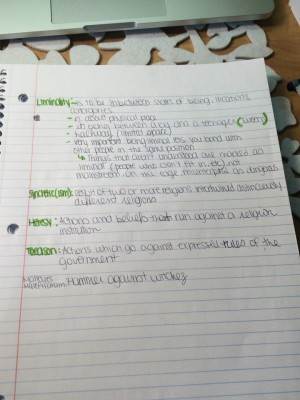 Liminality - is to be inbetween states of being, locations, categories
- in about physical place
- it's being between a boy and a teenager (tween)
- hallways (limited space)
- very important being liminal bcs you bond with other people in the same position
↳ Things that aren't understood are marked as liminal (people who don't fit in, etc), not mainstream on the edge
Syncretic(ism): result of two or more religions intertwined distinctively different religions
Heresy: Actions and beliefs that run against a religion institution
Treason: Actions which go against expressed rules of the government
Malleus Maleficarum: Hammer against witches